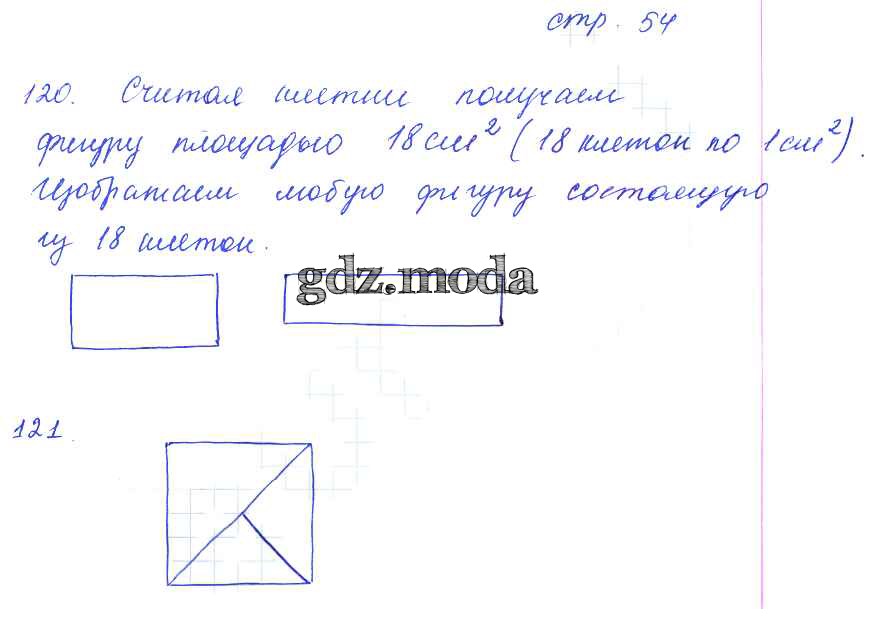 стр. 54
120. Считая клетки получаем
фигуру площадью 18 см² (18 клеток по 1 см²).
Изображаем любую фигуру состоящую
из 18 клеток.
gdz.moda
121.